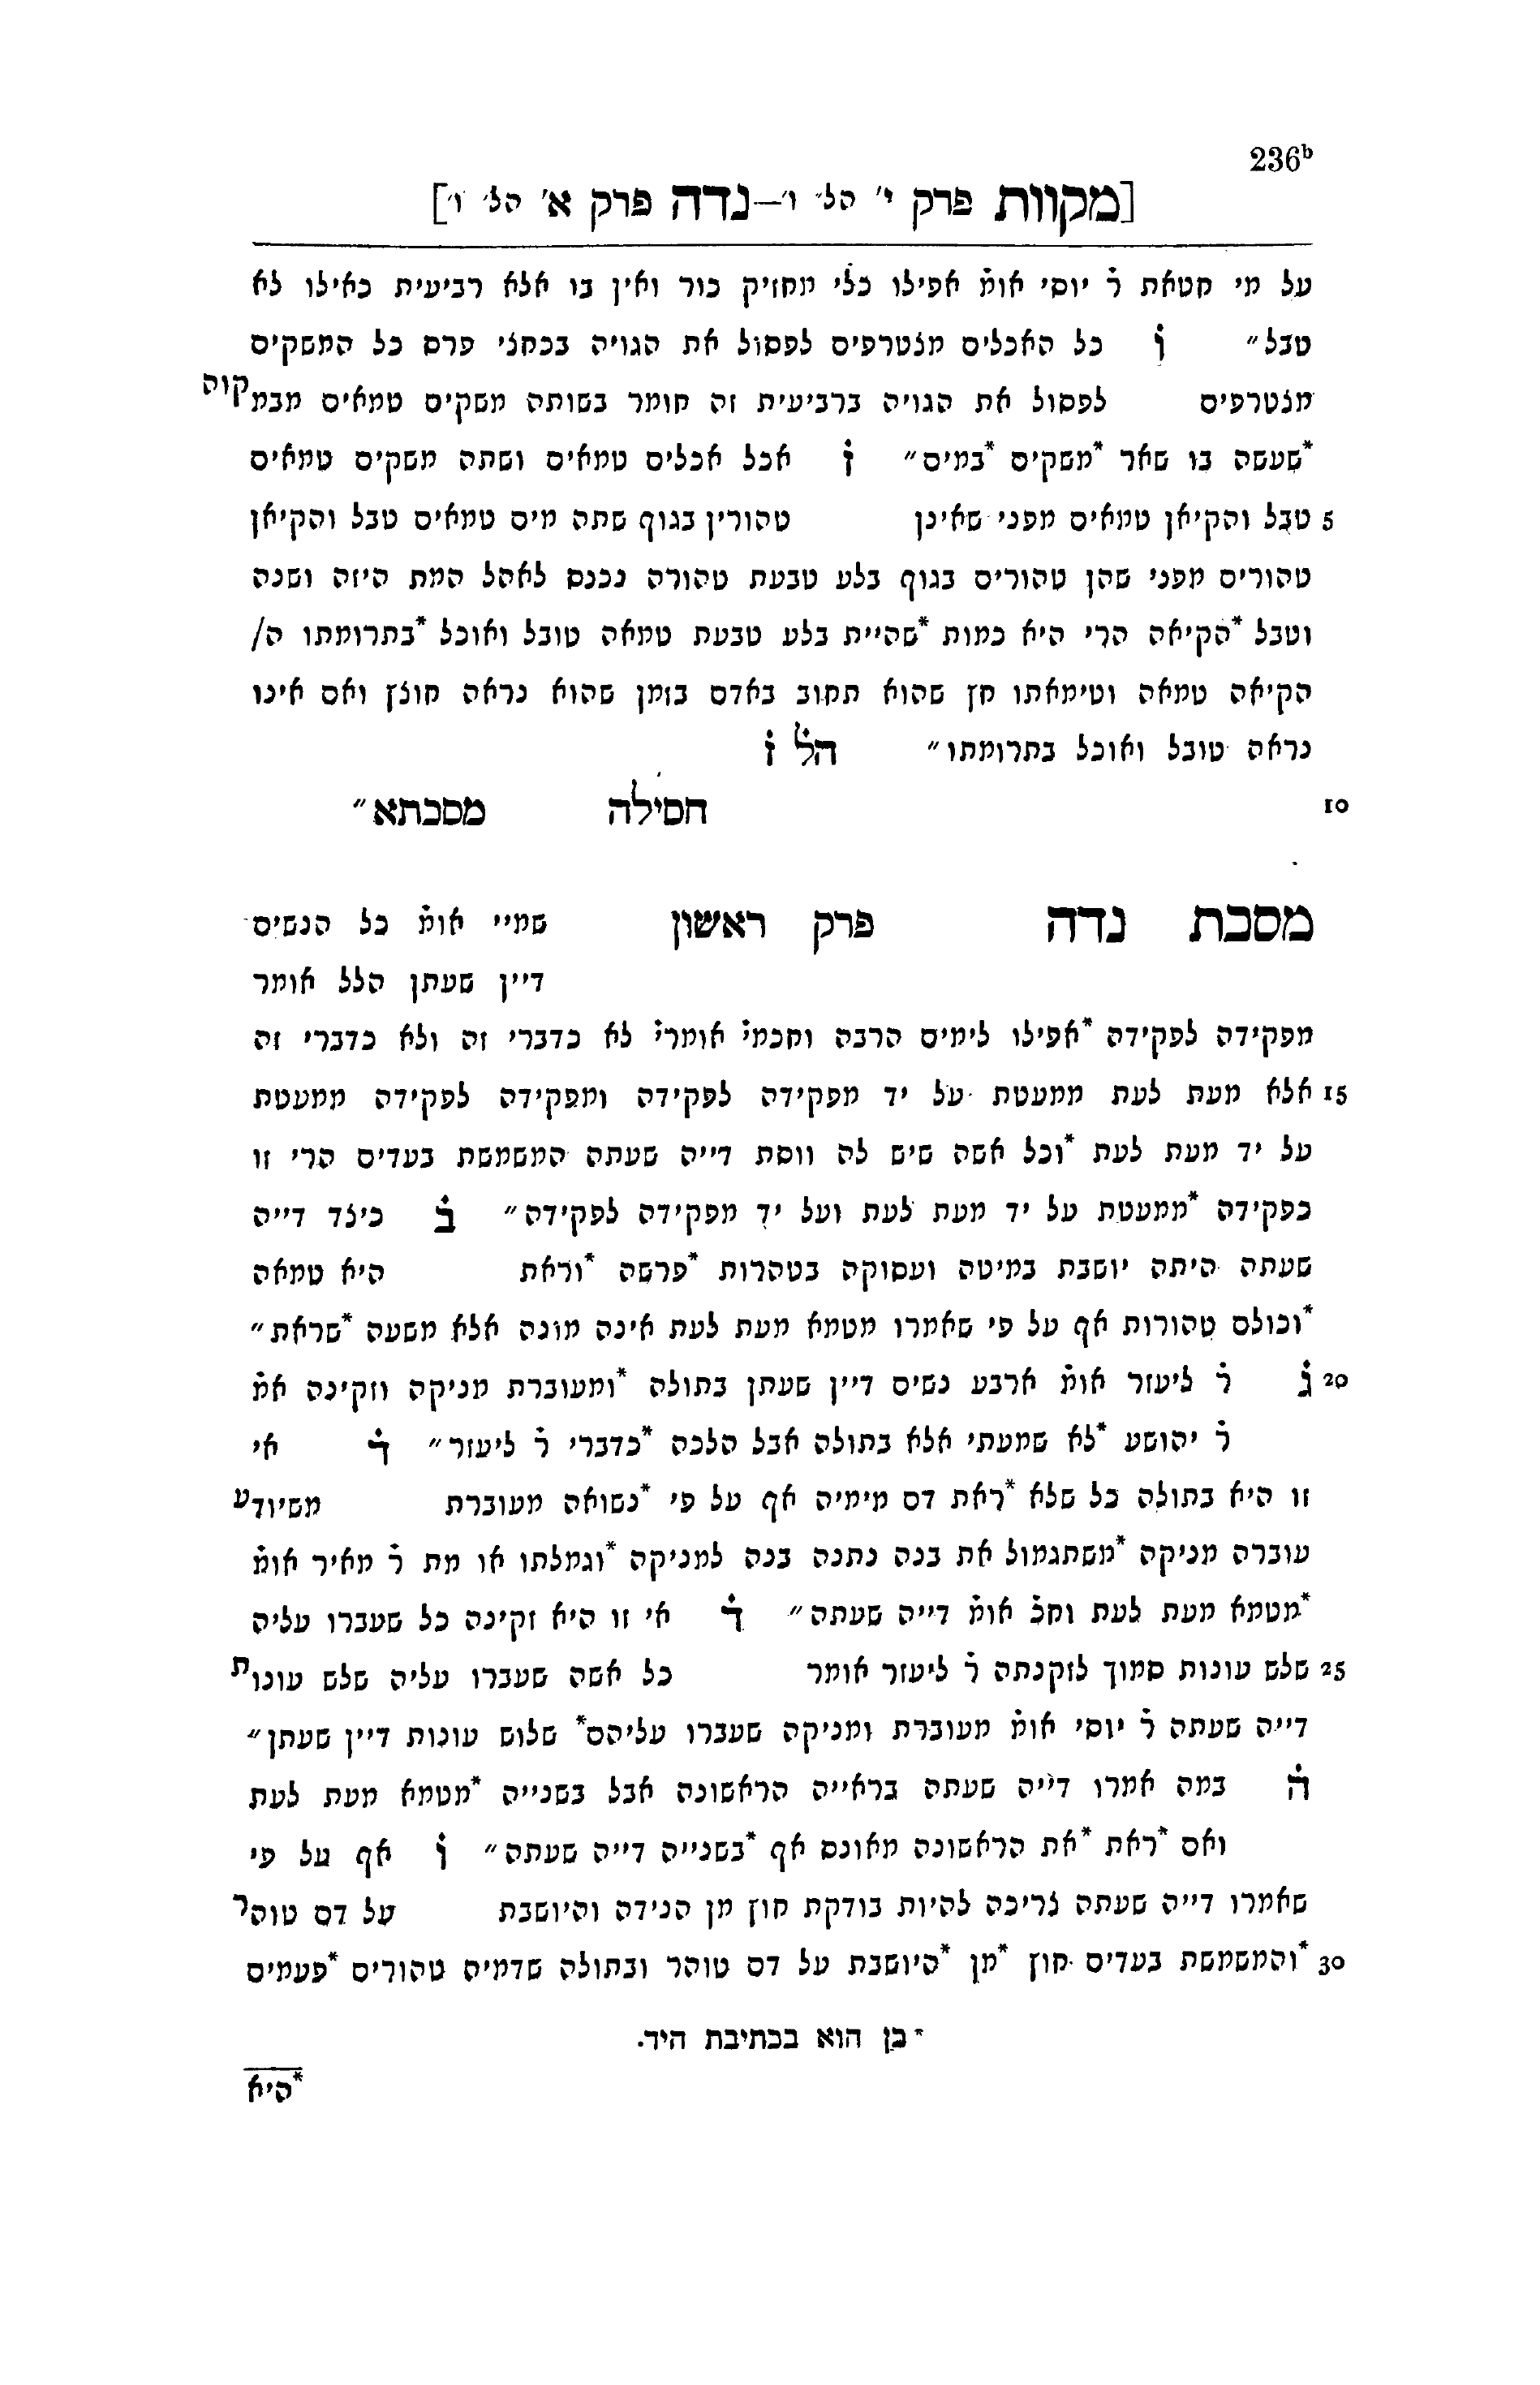 236ᵇ
[מקוות פרק י׳ הל׳ ו׳—נדה פרק א׳ הל׳ ו׳]
על מי חטאת ר̇ יוסי אומ̇ אפילו כלי מחזיק כור ואין בו אלא רביעית כאילו לא
טבל״ ו̇ כל האכלים מצטרפים לפסול את הגויה בכחצי פרס כל המשקים
מצטרפים לפסול את הגויה ברביעית זה חומר בשותה משקים טמאים מבמקוה
*שעשה בו שאר *משקים *במים״ ז̇ אכל אכלים טמאים ושתה משקים טמאים
5 טבל והקיאן טמאים מפני שאינן טהורין בגוף שתה מים טמאים טבל והקיאן
טהורים מפני שהן טהורים בגוף בלע טבעת טהורה נכנס לאהל המת היזה ושנה
וטבל *הקיאה הרי היא כמות *שהיית בלע טבעת טמאה טובל ואוכל *בתרומתו ה/
הקיאה טמאה וטימאתו חץ שהוא תחוב באדם בזמן שהוא נראה חוצץ ואם אינו
נראה טובל ואוכל בתרומתו״ הל̇ ז̇
10 חסילה מסכתא״
מסכת נדה פרק ראשון שמיי אומ̇ כל הנשים
דיין שעתן הלל אומר
מפקידה לפקידה *אפילו לימים הרבה וחכמי̇ אומרי̇ לא כדברי זה ולא כדברי זה
15 אלא מעת לעת ממעטת על יד מפקידה לפקידה ומפקידה לפקידה ממעטת
על יד מעת לעת *וכל אשה שיש לה ווסת דייה שעתה המשמשת בעדים הרי זו
כפקידה *ממעטת על יד מעת לעת ועל יד מפקידה לפקידה״ ב̇ כיצד דייה
שעתה היתה יושבת במיטה ועסוקה בטהרות *פרשה *וראת היא טמאה
*וכולם טהורות אף על פי שאמרו מטמא מעת לעת אינה מונה אלא משעה *שראת״
20 ג̇ ר̇ ליעזר אומ̇ ארבע נשים דיין שעתן בתולה *ומעוברת מניקה וזקינה אמ̇
ר̇ יהושע *לא שמעתי אלא בתולה אבל הלכה *כדברי ר̇ ליעזר״ ד̇ אי
זו היא בתולה כל שלא *ראת דם מימיה אף על פי *נשואה מעוברת משיודע
עוברה מניקה *משתגמול את בנה נתנה בנה למניקה *וגמלתו או מת ר̇ מאיר אומ̇
*מטמא מעת לעת וחכ̇ אומ̇ דייה שעתה״ ד̇ אי זו היא זקינה כל שעברו עליה
25 שלש עונות סמוך לזקנתה ר̇ ליעזר אומר כל אשה שעברו עליה שלש עונות
דייה שעתה ר̇ יוסי אומ̇ מעוברת ומניקה שעברו עליהם* שלוש עונות דיין שעתן״
ה̇ במה אמרו דייה שעתה בראייה הראשונה אבל בשנייה *מטמא מעת לעת
ואם *ראת *את הראשונה מאונס אף *בשנייה דייה שעתה״ ו̇ אף על פי
שאמרו דייה שעתה צריכה להיות בודקת חוץ מן הנידה והיושבת על דם טוהר
30 *והמשמשת בעדים חוץ *מן *היושבת על דם טוהר ובתולה שדמיה טהורים *פעמים
* כן הוא בכתיבת היד.
*היא